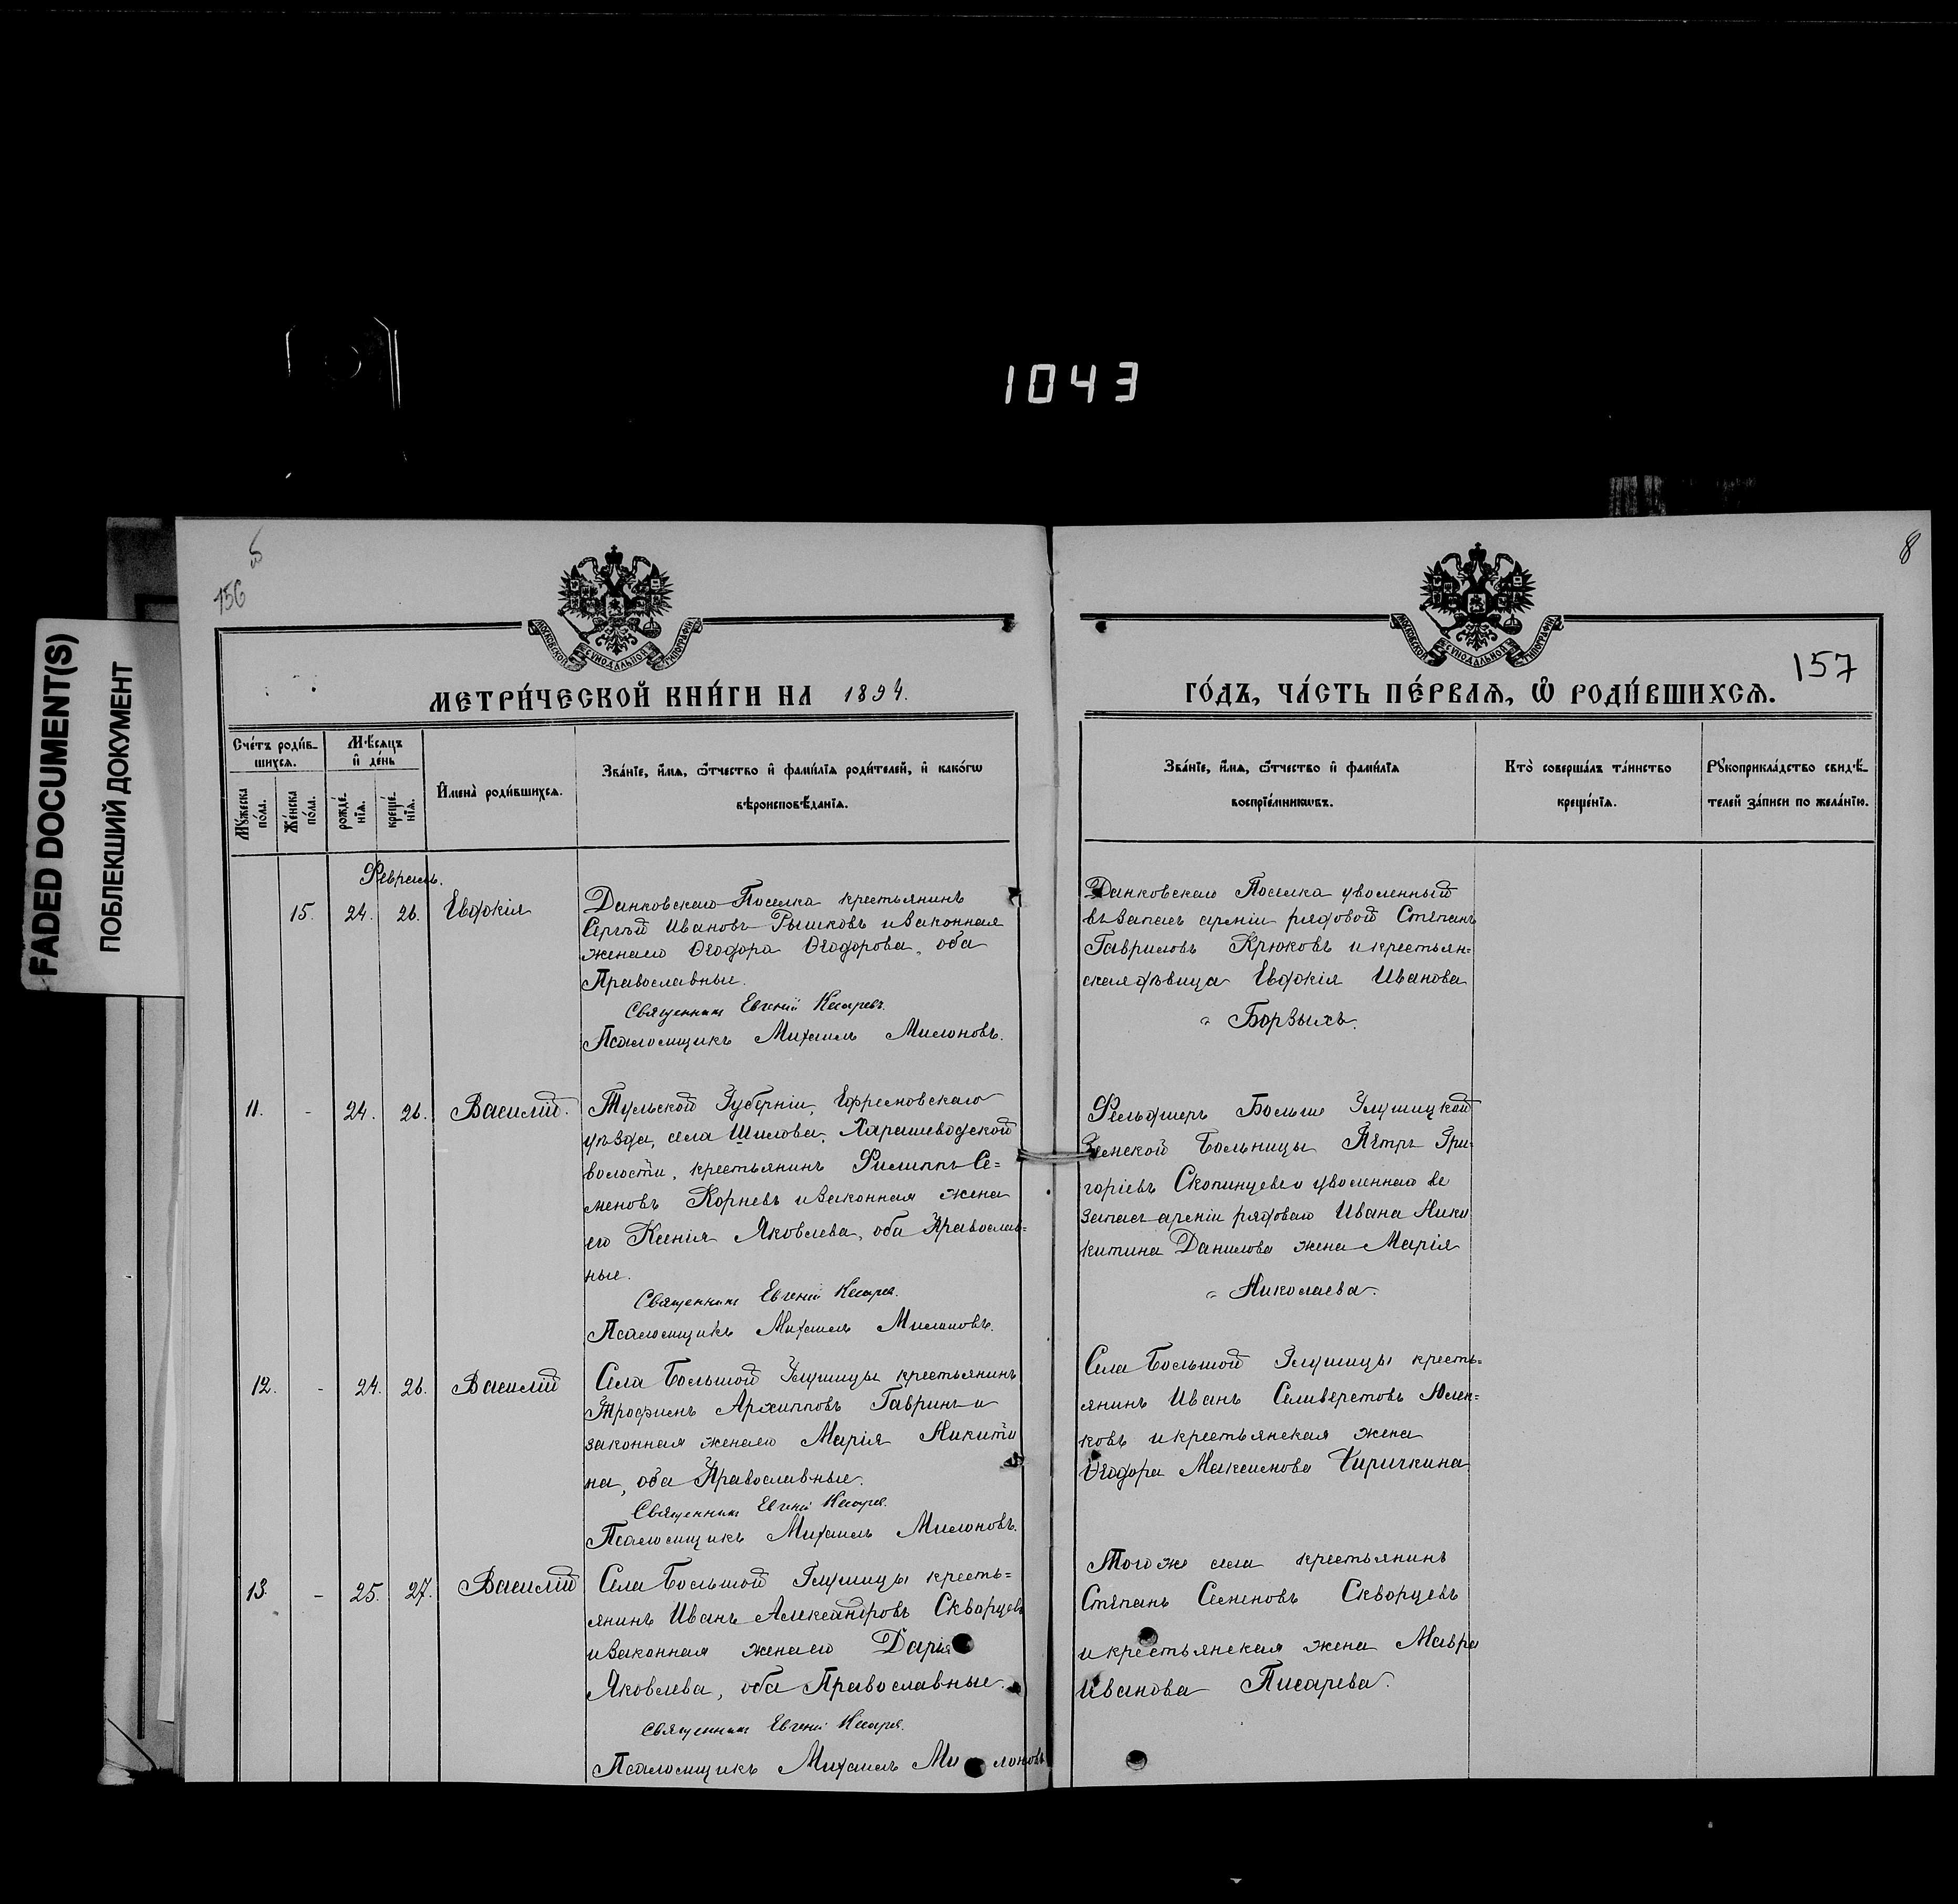 1043
FADED DOCUMENT(S)
ПОБЛЕКШИЙ ДОКУМЕНТ
156
8
157
МОСКОВСКОЙ СѴНОДАЛЬНОЙ ТИПОГРАФІИ
МОСКОВСКОЙ СѴНОДАЛЬНОЙ ТИПОГРАФІИ
МЕТРИ́ЧЕСКОЙ КНИ́ГИ НА 1894.
ГО́ДЪ, ЧА́СТЬ ПЕ́РВАѦ, Ѡ҆ РОДИ́ВШИХСѦ.
Сче́тъ роди́в-
шихсѧ.
Мꙋ́жеска
по́ла.
Же́нска
по́ла.
Мѣ́сѧцъ
и҆ де́нь
рожде́-
нїѧ.
креще́-
нїѧ.
И҆мена̀ роди́вшихсѧ.
Зва́нїе, и҆́мѧ, ѻ҆́тчество и҆ фами́лїѧ роди́телей, и҆ како́гѡ
вѣроисповѣ́данїѧ.
Зва́нїе, и҆́мѧ, ѻ҆́тчество и҆ фами́лїѧ
воспрїе́мникѡвъ.
Кто̀ соверша́лъ та́инство
креще́нїѧ.
Рꙋкоприкла́дство свидѣ́-
телей за́писи по жела́нїю.
Февраль.
15. 24. 26. Евдокія
Данковскаго Поселка крестьянинъ
Сергѣй Ивановъ Рышковъ и законная
жена его Ѳеодора Ѳеодорова, оба
Православные.
Священникъ Евгеній Кесаревъ.
Псаломщикъ Михаилъ Милоновъ.
Данковскаго Поселка уволенный
въ запасъ арміи рядовой Степанъ
Гавриловъ Крюковъ и крестьян=
ская дѣвица Евдокія Иванова
Борзыхъ.
11. - 24. 26. Василій.
Тульской Губерніи, Ефремовскаго
уѣзда, села Шилова,
волости, крестьянинъ Филиппъ Се=
меновъ Корневъ и законная жена
его Ксенія Яковлева, оба Православ=
ные.
Священникъ Евгеній Кесарев.
Псаломщикъ Михаилъ Милоновъ.
Фельдшеръ Больше Глушицкой
Земской Больницы Петръ Гри-
горіевъ Скопинцевъ и уволеннаго въ
запасъ арміи рядоваго Ивана Ники
китина Данилова жена Марія
Николаева.
12. - 24. 26. Василій
Села Большой Глушицы крестьянинъ
Трофимъ Архиповъ Гавринъ и
законная жена его Марія Никити
на, оба Православные.
Священникъ Евгеній Кесарев.
Псаломщикъ Михаилъ Милоновъ.
Села Большой Глушицы кресть=
янинъ Иванъ Селиверстовъ Юлен=
ковъ и крестьянская жена
Ѳеодора Максимова Чиричкина
13. - 25. 27. Василій
Села Большой Глушицы кресть=
янинъ Иванъ Александровъ Скворцевъ
и законная жена его Дарія
Яковлева, оба Православные.
Священникъ Евгеній Кесарев.
Псаломщикъ Михаилъ Милоновъ
Того же села крестьянинъ
Степанъ Семеновъ Скворцевъ
и крестьянская жена Мавра
Иванова Писарева.